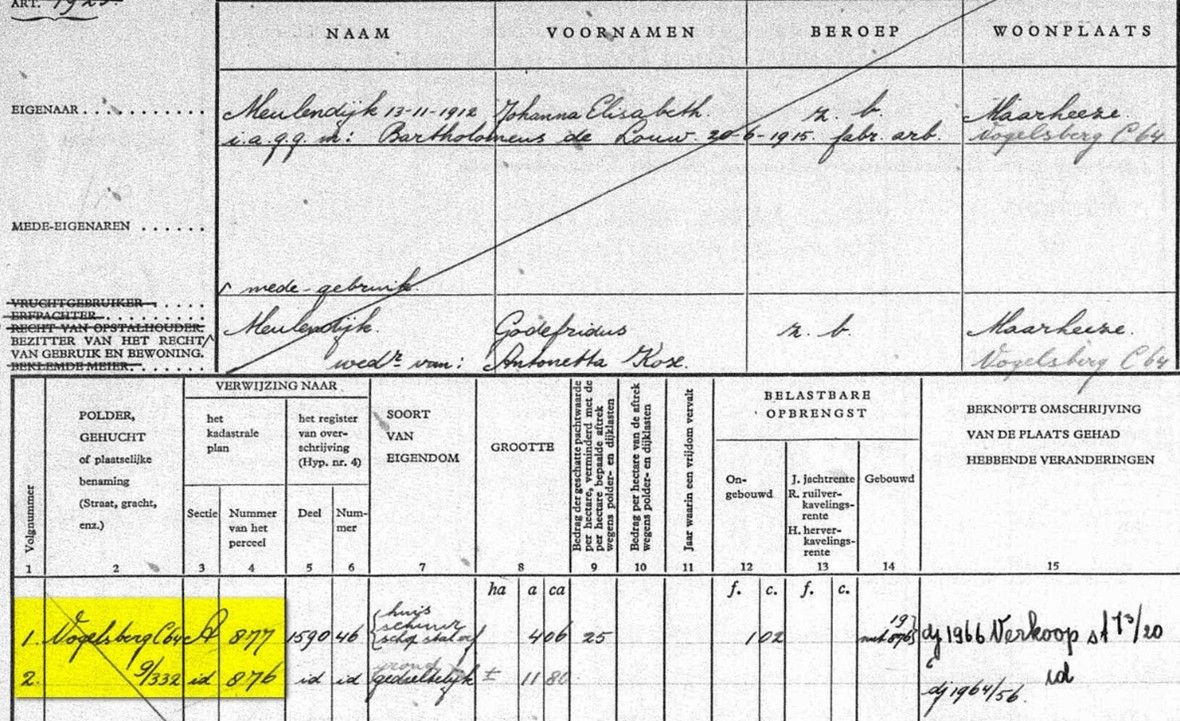 ART. 1925
NAAM VOORNAMEN BEROEP WOONPLAATS
EIGENAAR . . . . . . . . . . . . Meulendijk 13-11-1912 Johanna Elisabeth. z. b. Maarheeze.
i.a.g.g. m: Bartholomeus de Louw. 20-6-1915. fabr. arb. Vogelsberg C 64
MEDE-EIGENAREN . . . . . .
mede-gebruik.
VRUCHTGEBRUIKER . . . . .
ERFPACHTER . . . . . . . . . .
RECHT VAN OPSTALHOUDER. Meulendijk. Godefridus z. b. Maarheeze.
BEZITTER VAN HET RECHT
VAN GEBRUIK EN BEWONING. wedr van: Antonetta Kox. Vogelsberg C 64
BEKLEMDE MEIER. . . . . . .
Volgnummer
POLDER,
GEHUCHT
of plaatselijke
benaming
(Straat, gracht,
enz.)
VERWIJZING NAAR
het
kadastrale
plan
Sectie
Nummer
van het
perceel
het register
van over-
schrijving
(Hyp. nr. 4)
Deel
Num-
mer
SOORT
VAN
EIGENDOM
GROOTTE
Bedrag der geschatte pachtwaarde
per hectare, verminderd met de
per hectare bepaalde aftrek
wegens polder- en dijklasten
Bedrag per hectare van de aftrek
wegens polder- en dijklasten
Jaar waarin een vrijdom vervalt
BELASTBARE
OPBRENGST
On-
gebouwd
J. Jachtrente
R. ruilver-
kavelings-
rente
H. herver-
kavelings-
rente
Gebouwd
BEKNOPTE OMSCHRIJVING
VAN DE PLAATS GEHAD
HEBBENDE VERANDERINGEN
1 2 3 4 5 6 7 8 9 10 11 12 13 14 15
ha a ca f. c. f. c.
huis
schuur
1. Vogelsberg C64 A 877 1590 46 schop stal erf 4 06 25 1 02 19 met 876 dj 1966 Verkoop st 73/20
grond
2. 9/332 id 876 id id gedeeltelijk ± 11 80 id
dj 1964/56